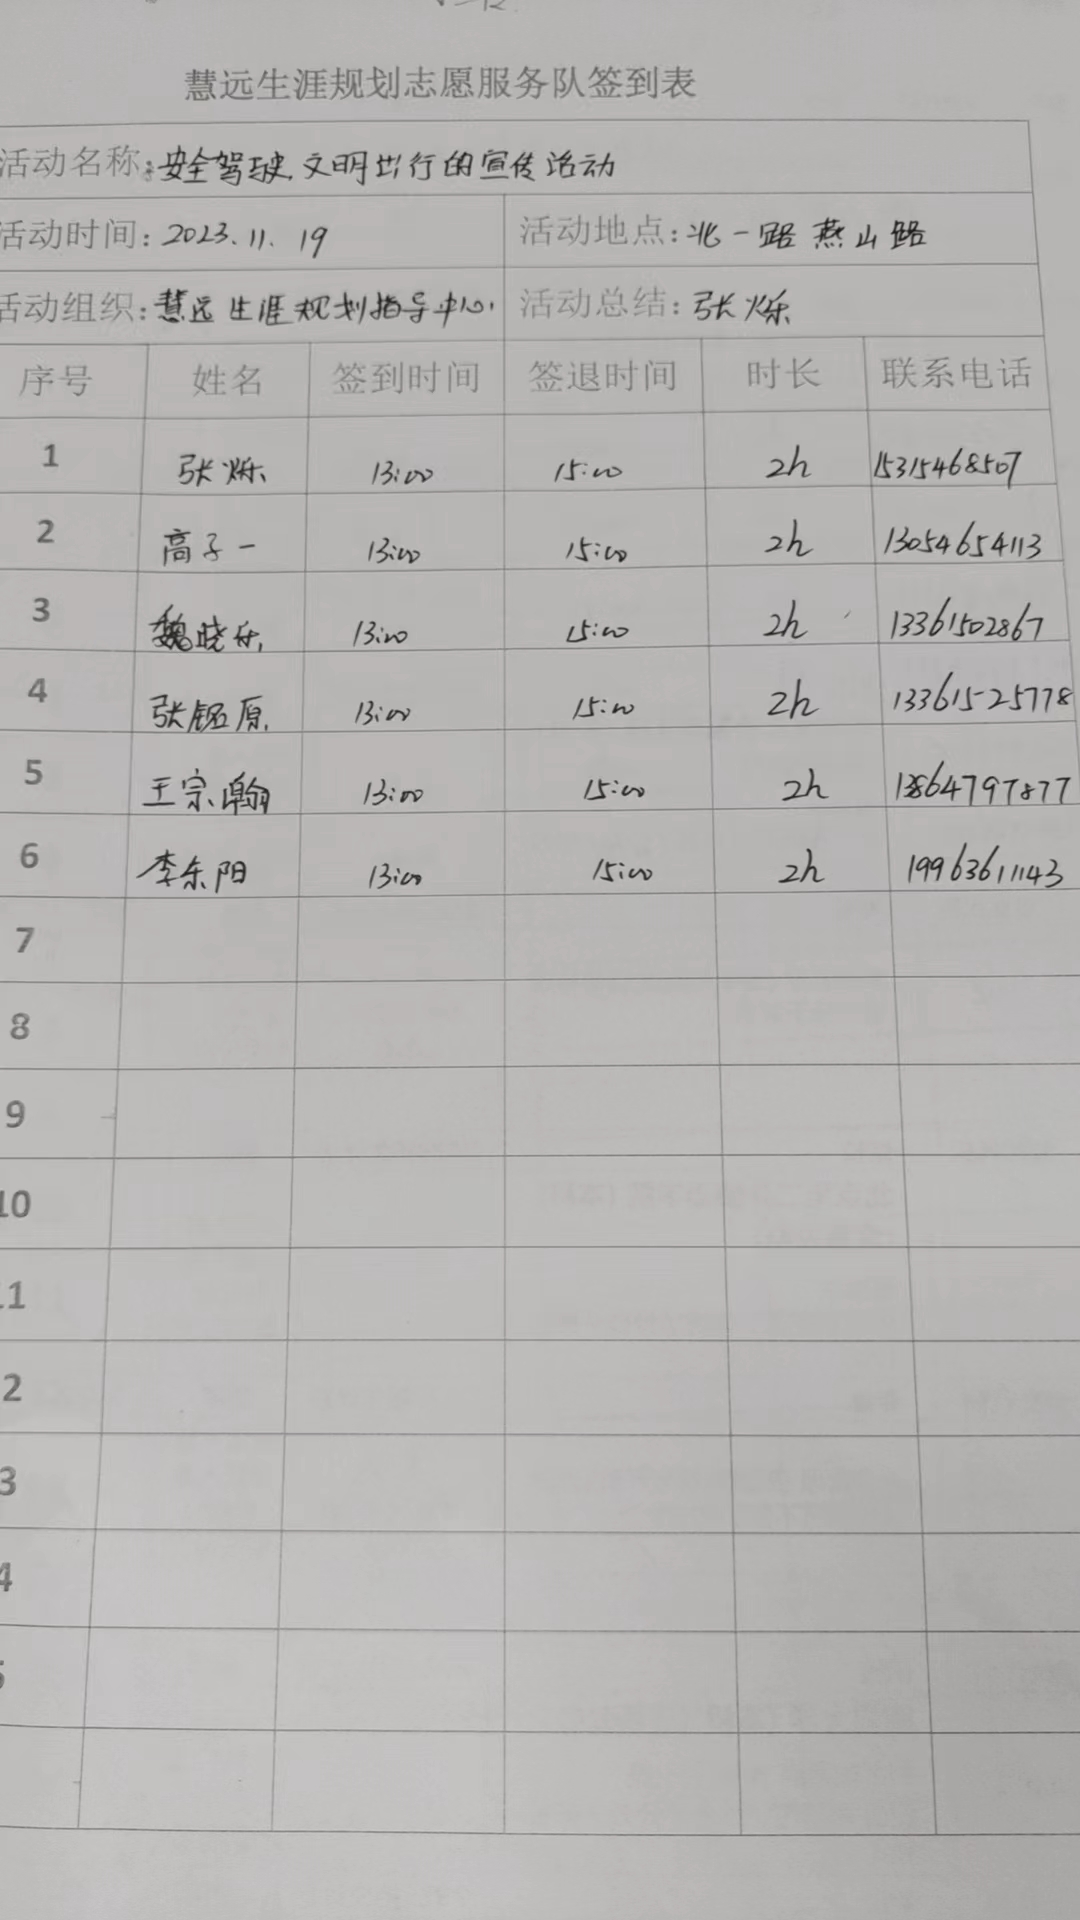 慧远生涯规划志愿服务队签到表
活动名称:安全驾驶.文明出行的宣传活动
活动时间:2023.11.19 活动地点:北一路燕山路
活动组织:慧远生涯规划指导中心 活动总结:张烁
序号 姓名 签到时间 签退时间 时长 联系电话
1 张烁 13:00 15:00 2h 15315468507
2 高子一 13:00 15:00 2h 13054654113
3 魏晓乐 13:00 15:00 2h 13361502867
4 张铭原 13:00 15:00 2h 13361525778
5 王宗瀚 13:00 15:00 2h 13864797877
6 李东阳 13:00 15:00 2h 19963611143
7
8
9
10
11
2
3
4
5